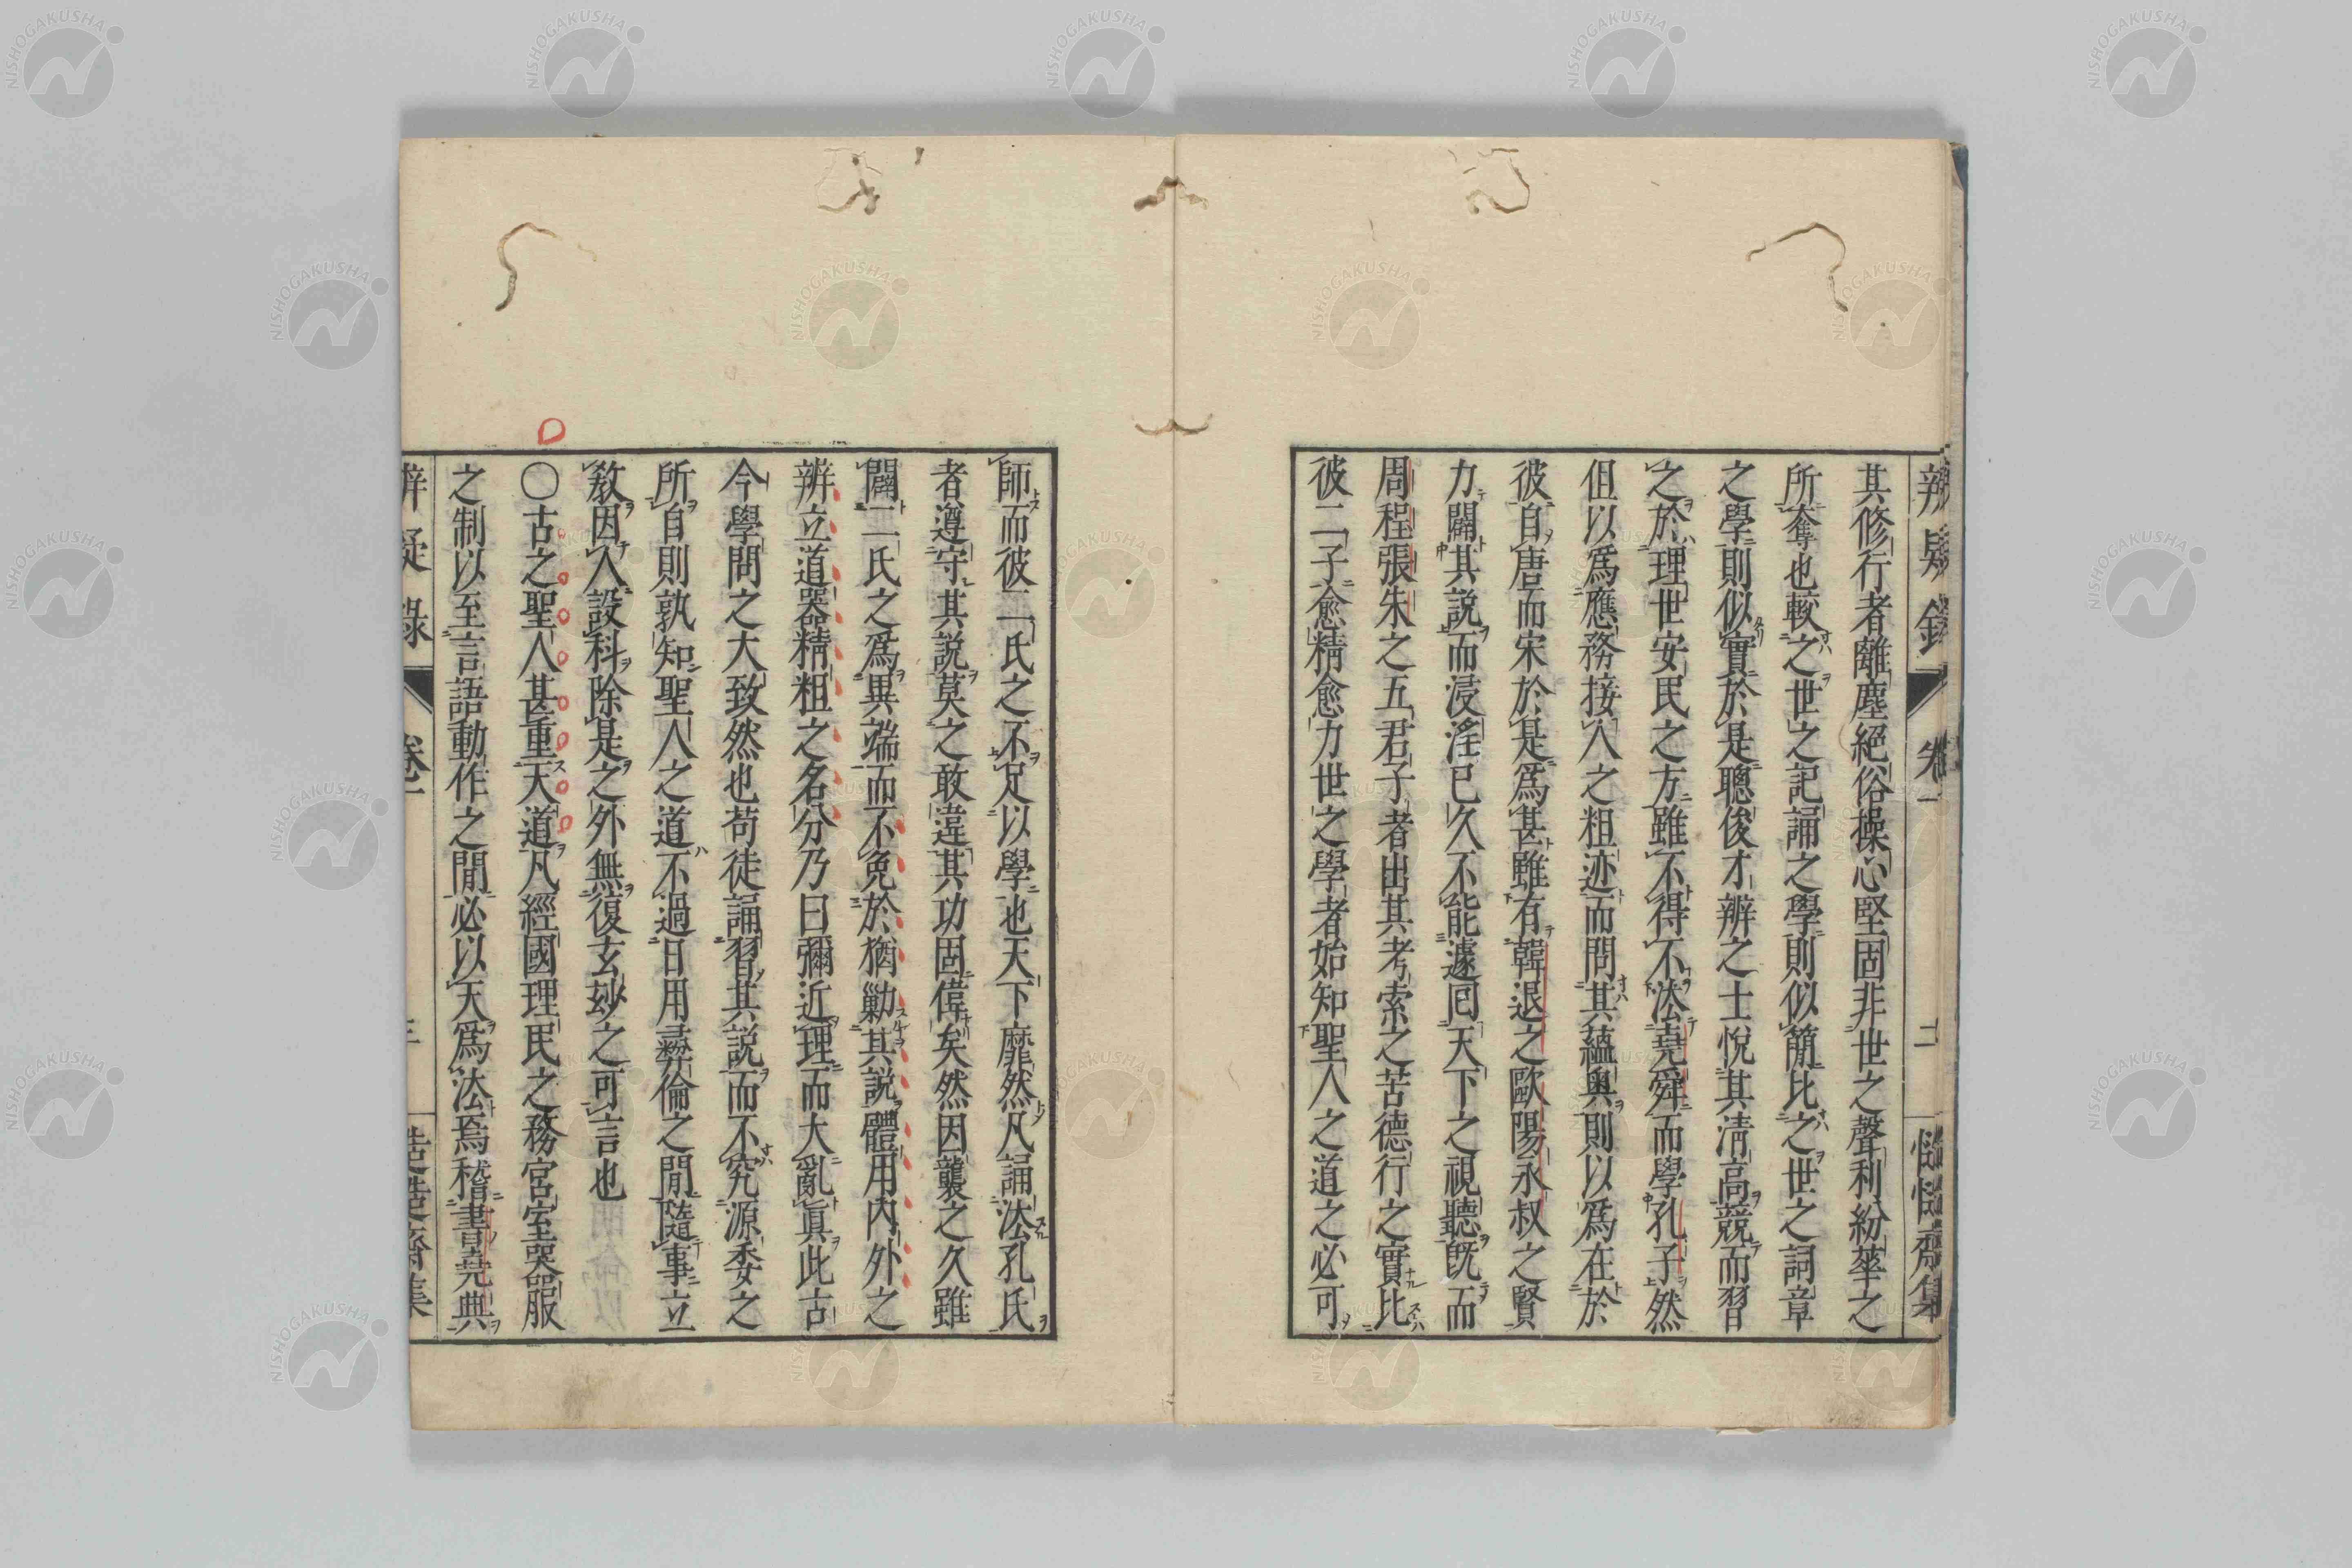 辨疑錄 卷一 二 慥慥齋集
其修行者離塵絕俗操心堅固非世之聲利紛華之
所奪也較之世之記誦之學則似簡比之世之詞章
之學則似實於是聰俊才辨之士悅其清高競而習
之於理世安民之方雖不得不法堯舜而學孔子然
但以爲應務接人之粗迹而問其蘊奧則以爲在於
彼自唐而宋於是爲甚雖有韓退之歐陽永叔之賢
力闢其說而浸淫已久不能遽回天下之視聽既而
周程張朱之五君子者出其考索之苦德行之實比
彼二子愈精愈力世之學者始知聖人之道之必可
師而彼二氏之不足以學也天下靡然凡誦法孔氏
者遵守其說莫之敢違其功固偉矣然因襲之久雖
闢二氏之爲異端而不免於猶勦其說體用內外之
辨立道器精粗之名分乃曰彌近理而大亂眞此古
今學問之大致然也苟徒誦習其說而不究源委之
所自則孰知聖人之道不過日用彛倫之閒隨事立
敎因人設科除是之外無復玄玅之可言也
〇古之聖人甚重天道凡經國理民之務宮室器服
之制以至言語動作之閒必以天爲法焉稽書堯典
辨疑錄 卷一 三 慥慥齋集
NISHOGAKUSHA